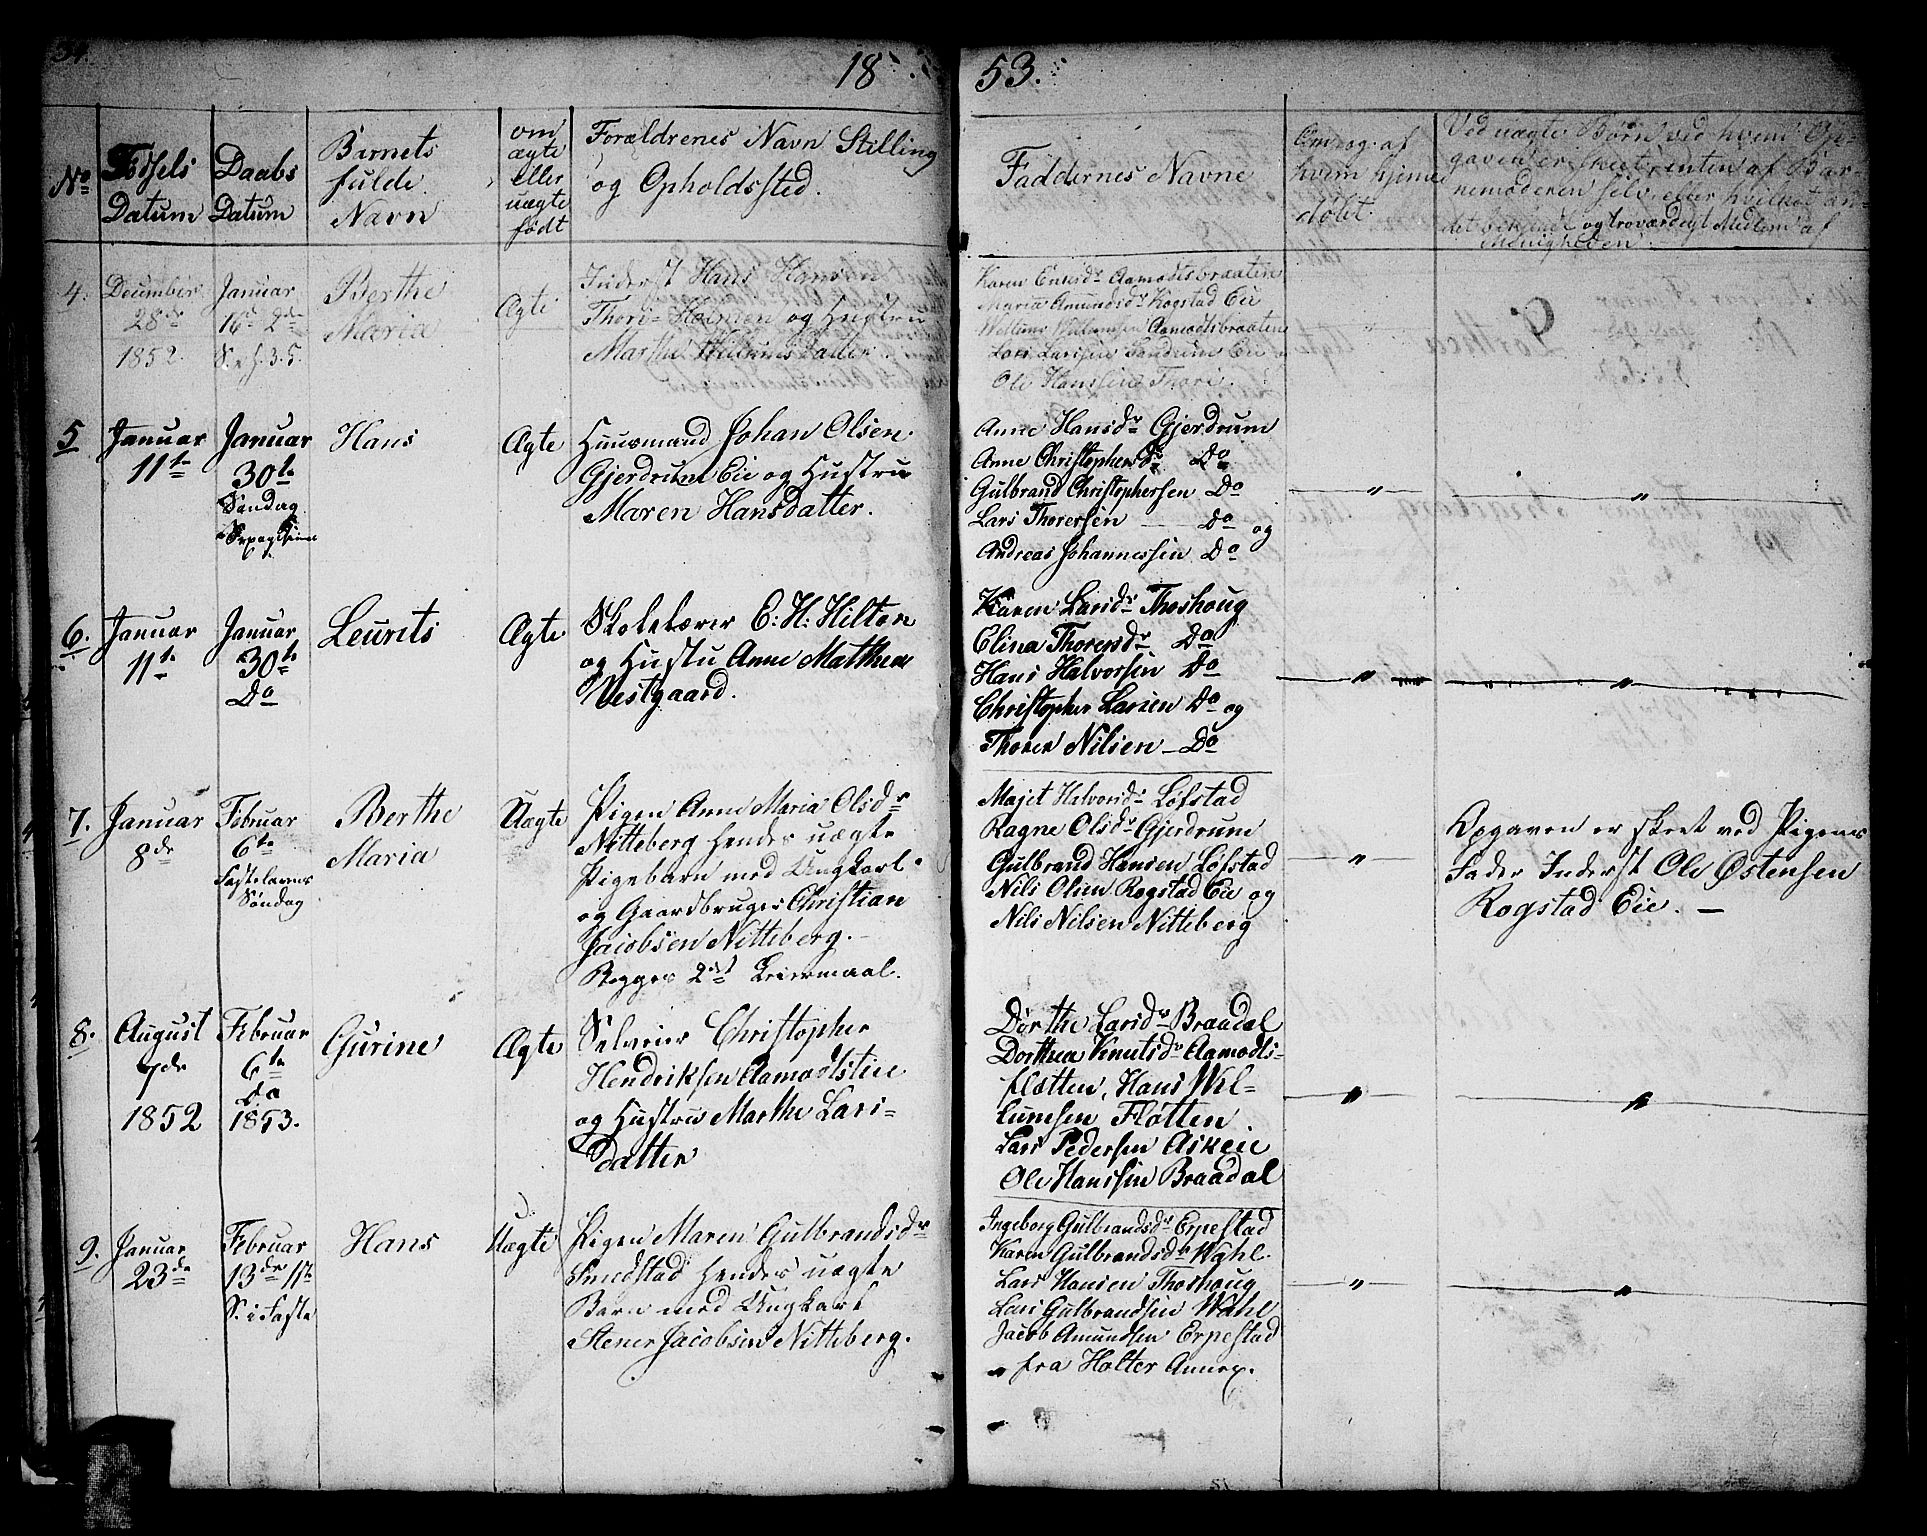 34.
18 53.
No
Födsels
Datum
Daabs
Datum
Barnets
fulde
Navn
om
ægte
eller
uægte
födt
Forældrenes Navn Stilling
og Opholdssted.
Faddernes Navne
Om og af
hvem hjemme
døbt.
Ved uægte Börn ved hvem Op-
gaven er skeet enten af Bar-
nemoderen selv, eller hvilket an-
det bekjendt og troværdigt Medlem af
Menigheden.
4.
December
28de
1852.
Januar
16de 2de
S. e. h. 3. K.
Berthe
Maria
Ægte
Inderst Hans Hansen
Thori- Holmen og Hustru
Marthe Willumsdatter
Karen Ericsdr Aamodtsbraaten
Maria Amundsdr Kogstad Eie
Willums Willumsen Aamodtsbraatene
Lars Larssen Eie
Ole Hanssen Thori.
5
Januar
11te
Januar
30te
Søndag
Sexagesima
Hans
Ægte
Huusmand Johan Olsen
Gjerdrum Eie og Hustru
Maren Hansdatter.
Anne Hansdr Gjerdrum
Anne Christophersdr Do
Gulbrand Christophersen Do
Lars Thorersen — Do og
Andreas Johannessen Do
— " —
— " —
6.
Januar
11te
Januar
30te
Do
Leurits
Ægte
Skolelærer E. H. Hilton
og Hustu Anne Mathea
Vestgaard.
Karen Larsdr Thoshoug
Elina Thorersdr Do
Hans Halvorsen Do
Christopher Larsen Do og
Thorer Nilsen — Do
— " —
— " —
7.
Januar
8de
Februar
6te
Fastelavens
Søndag
Berthe
Maria
Uægte
Pigen Anne Maria Olsdr
Nitteberg hendes uægte
Pigebarn med Ungkarl
og Gaardbruger Christian
Jacobsen Nitteberg.—
Begges 2det Leiermaal.
Majet Halvorsdr Løfstad
Ragne Olsdr Gjerdrum
Gulbrand Hansen Løfstad
Nils Olsen Rogstad Eie og
Nils Nilsen Nitteberg
— " —
Opgaven er skeet ved Pigens
Fader Inderst Ole Østensen
Rogstad Eie. —
8.
August
7de
1852
Februar
6te
do
1853.
Gurine
Ægte
Selveier Christopher
Hendriksen Aamodtstien
og Hustru Marthe Lars-
datter
Dorthe Larsdr Braadal
Dorthea Knutsdr Aamodts-
fløtten, Hans Wil-
lumsen Fløtten
Lars Pedersen Askeie
Ole Hanssen Braadal
— " —
— " —
9.
Januar
23de
Februar
13de 1te
S. i Faste
Hans
Uægte
Pigen Maren Gulbrandsdr
Smedstad hendes uægte
Barn med Ungkarl
Stener Jacobsen Nitteberg.
Ingeborg Gulbrandsdr Erpestad
Karen Gulbrandsdr Wahl.
Lars Hansen Thoshoug
Lars Gulbrandsen Wahl
Jacob Amundsen Erpestad
" fra Holter Annex.
— " —
— " —